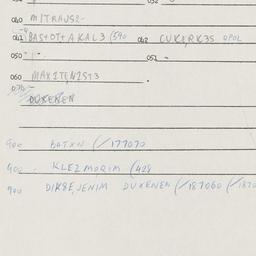 040 MITRAUS2-
041 BAS+OT+AKAL3 (540 042 CUKKRK3S OPOL
050 - 1 - . 051 - .
060 MAX2TE,NZST3 .
070
DUXENEN
900 BATXN (/177070
900 . KLEZMORIM (428
900 DIKSE,JENIM DUXENEN (/187060 (/1870